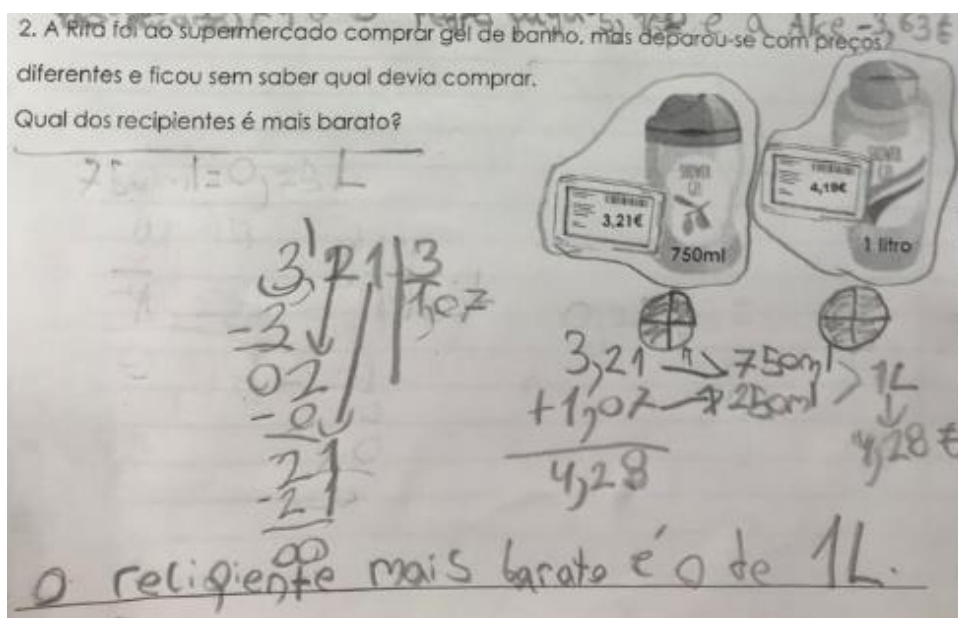 é a Ake -3,63€
2. A Rita foi ao supermercado comprar gel de banho, mas deparou-se com preços
diferentes e ficou sem saber qual devia comprar.
Qual dos recipientes é mais barato?
SHOWER
GEL
3,21€
750ml
SHOWER
GEL
4,19€
1 litro
3,21 | 3
-3 1,07
02
-0
21
-21
00
3,21 → 750ml
+1,07 → 250ml
4,28
1L
4,28€
O recipiente mais barato é o de 1L.